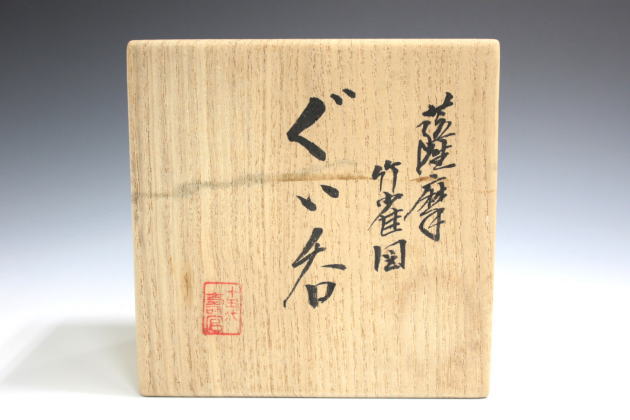 薩摩
竹雀図
ぐい呑
十五代
壽官